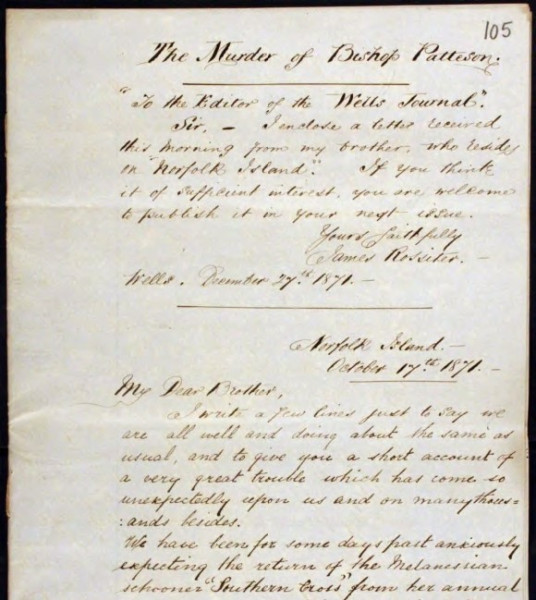 105
The Murder of Bishop Patteson.
"To the Editor of the Wells Journal".
Sir, — I enclose a letter received
this morning from my brother, who resides
on "Norfolk Island". If you think
it of sufficient interest, you are welcome
to publish it in your next issue.
Yours faithfully
James Rossiter. —
Wells. December 27th 1871. —
Norfolk Island. —
October 17th 1871. —
My Dear Brother,
I write a few lines just to say we
are all well and doing about the same as
usual, and to give you a short account of
a very great trouble which has come so
unexpectedly upon us and on many thous=
:ands besides.
We have been for some days past anxiously
expecting the return of the Melanesian
schooner "Southern Cross" from her annual